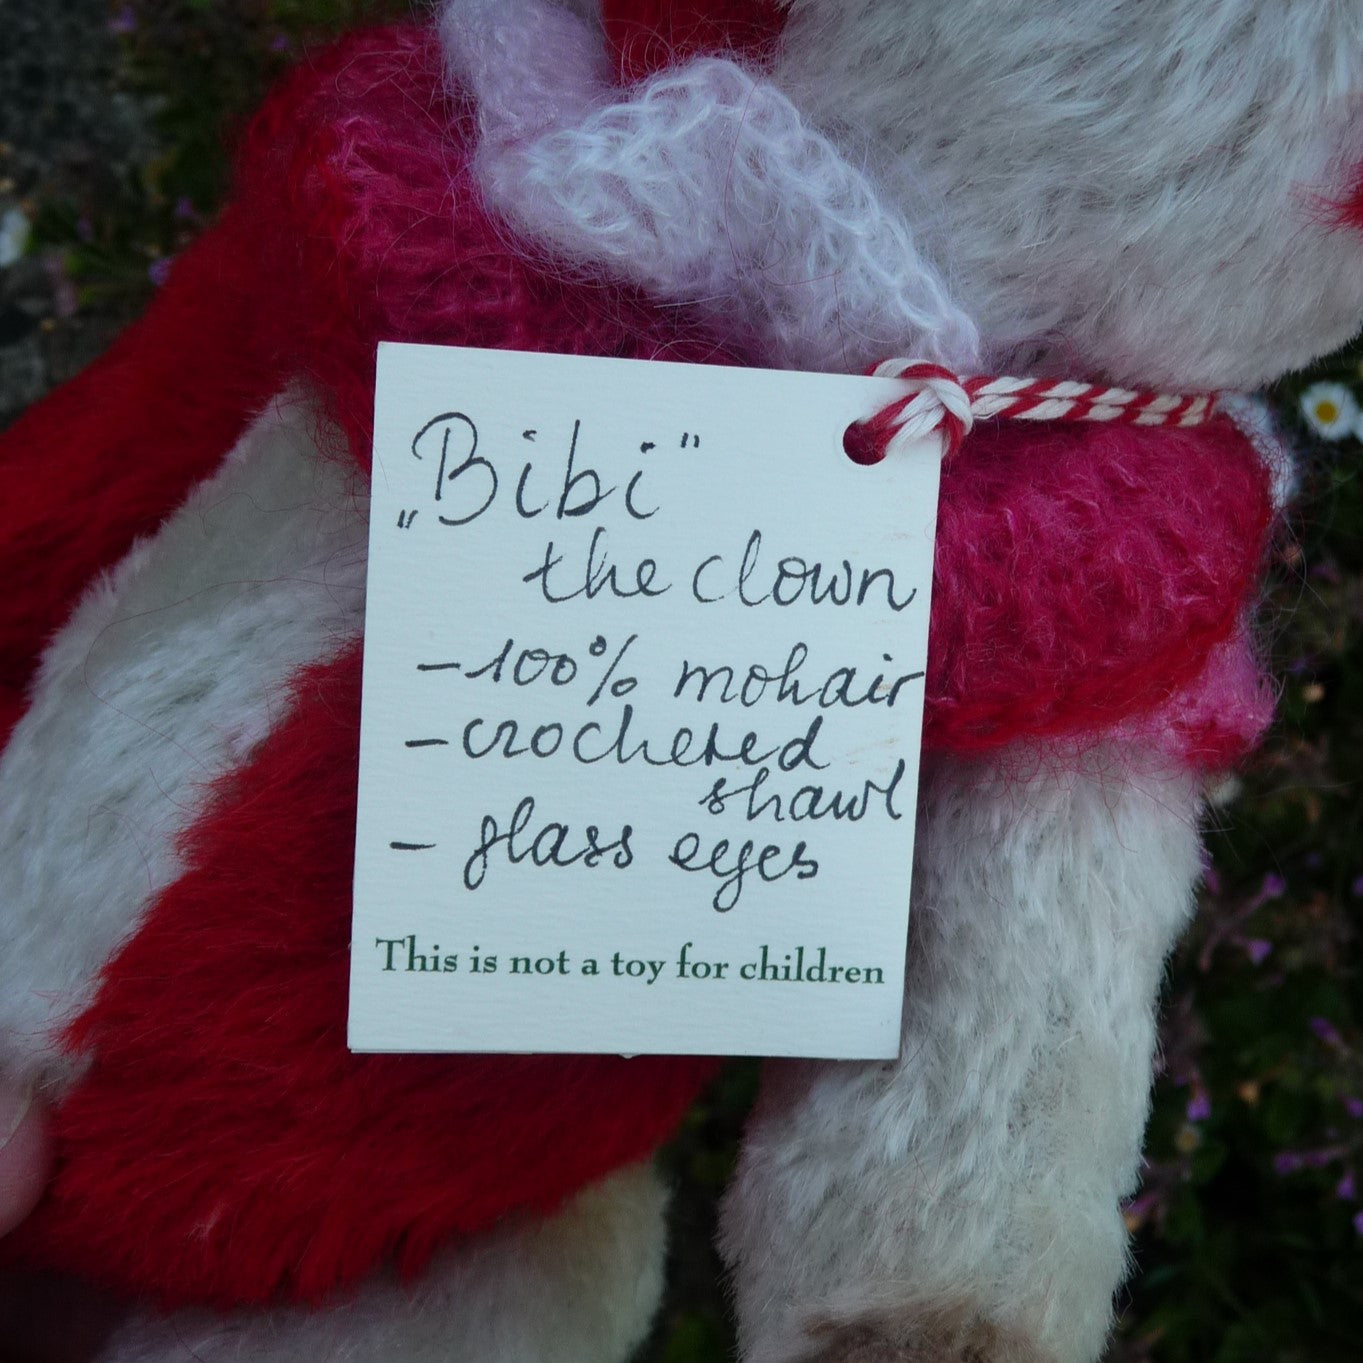 „Bibi"
the clown
- 100% mohair
- crocheted
shawl
- glass eyes
This is not a toy for children